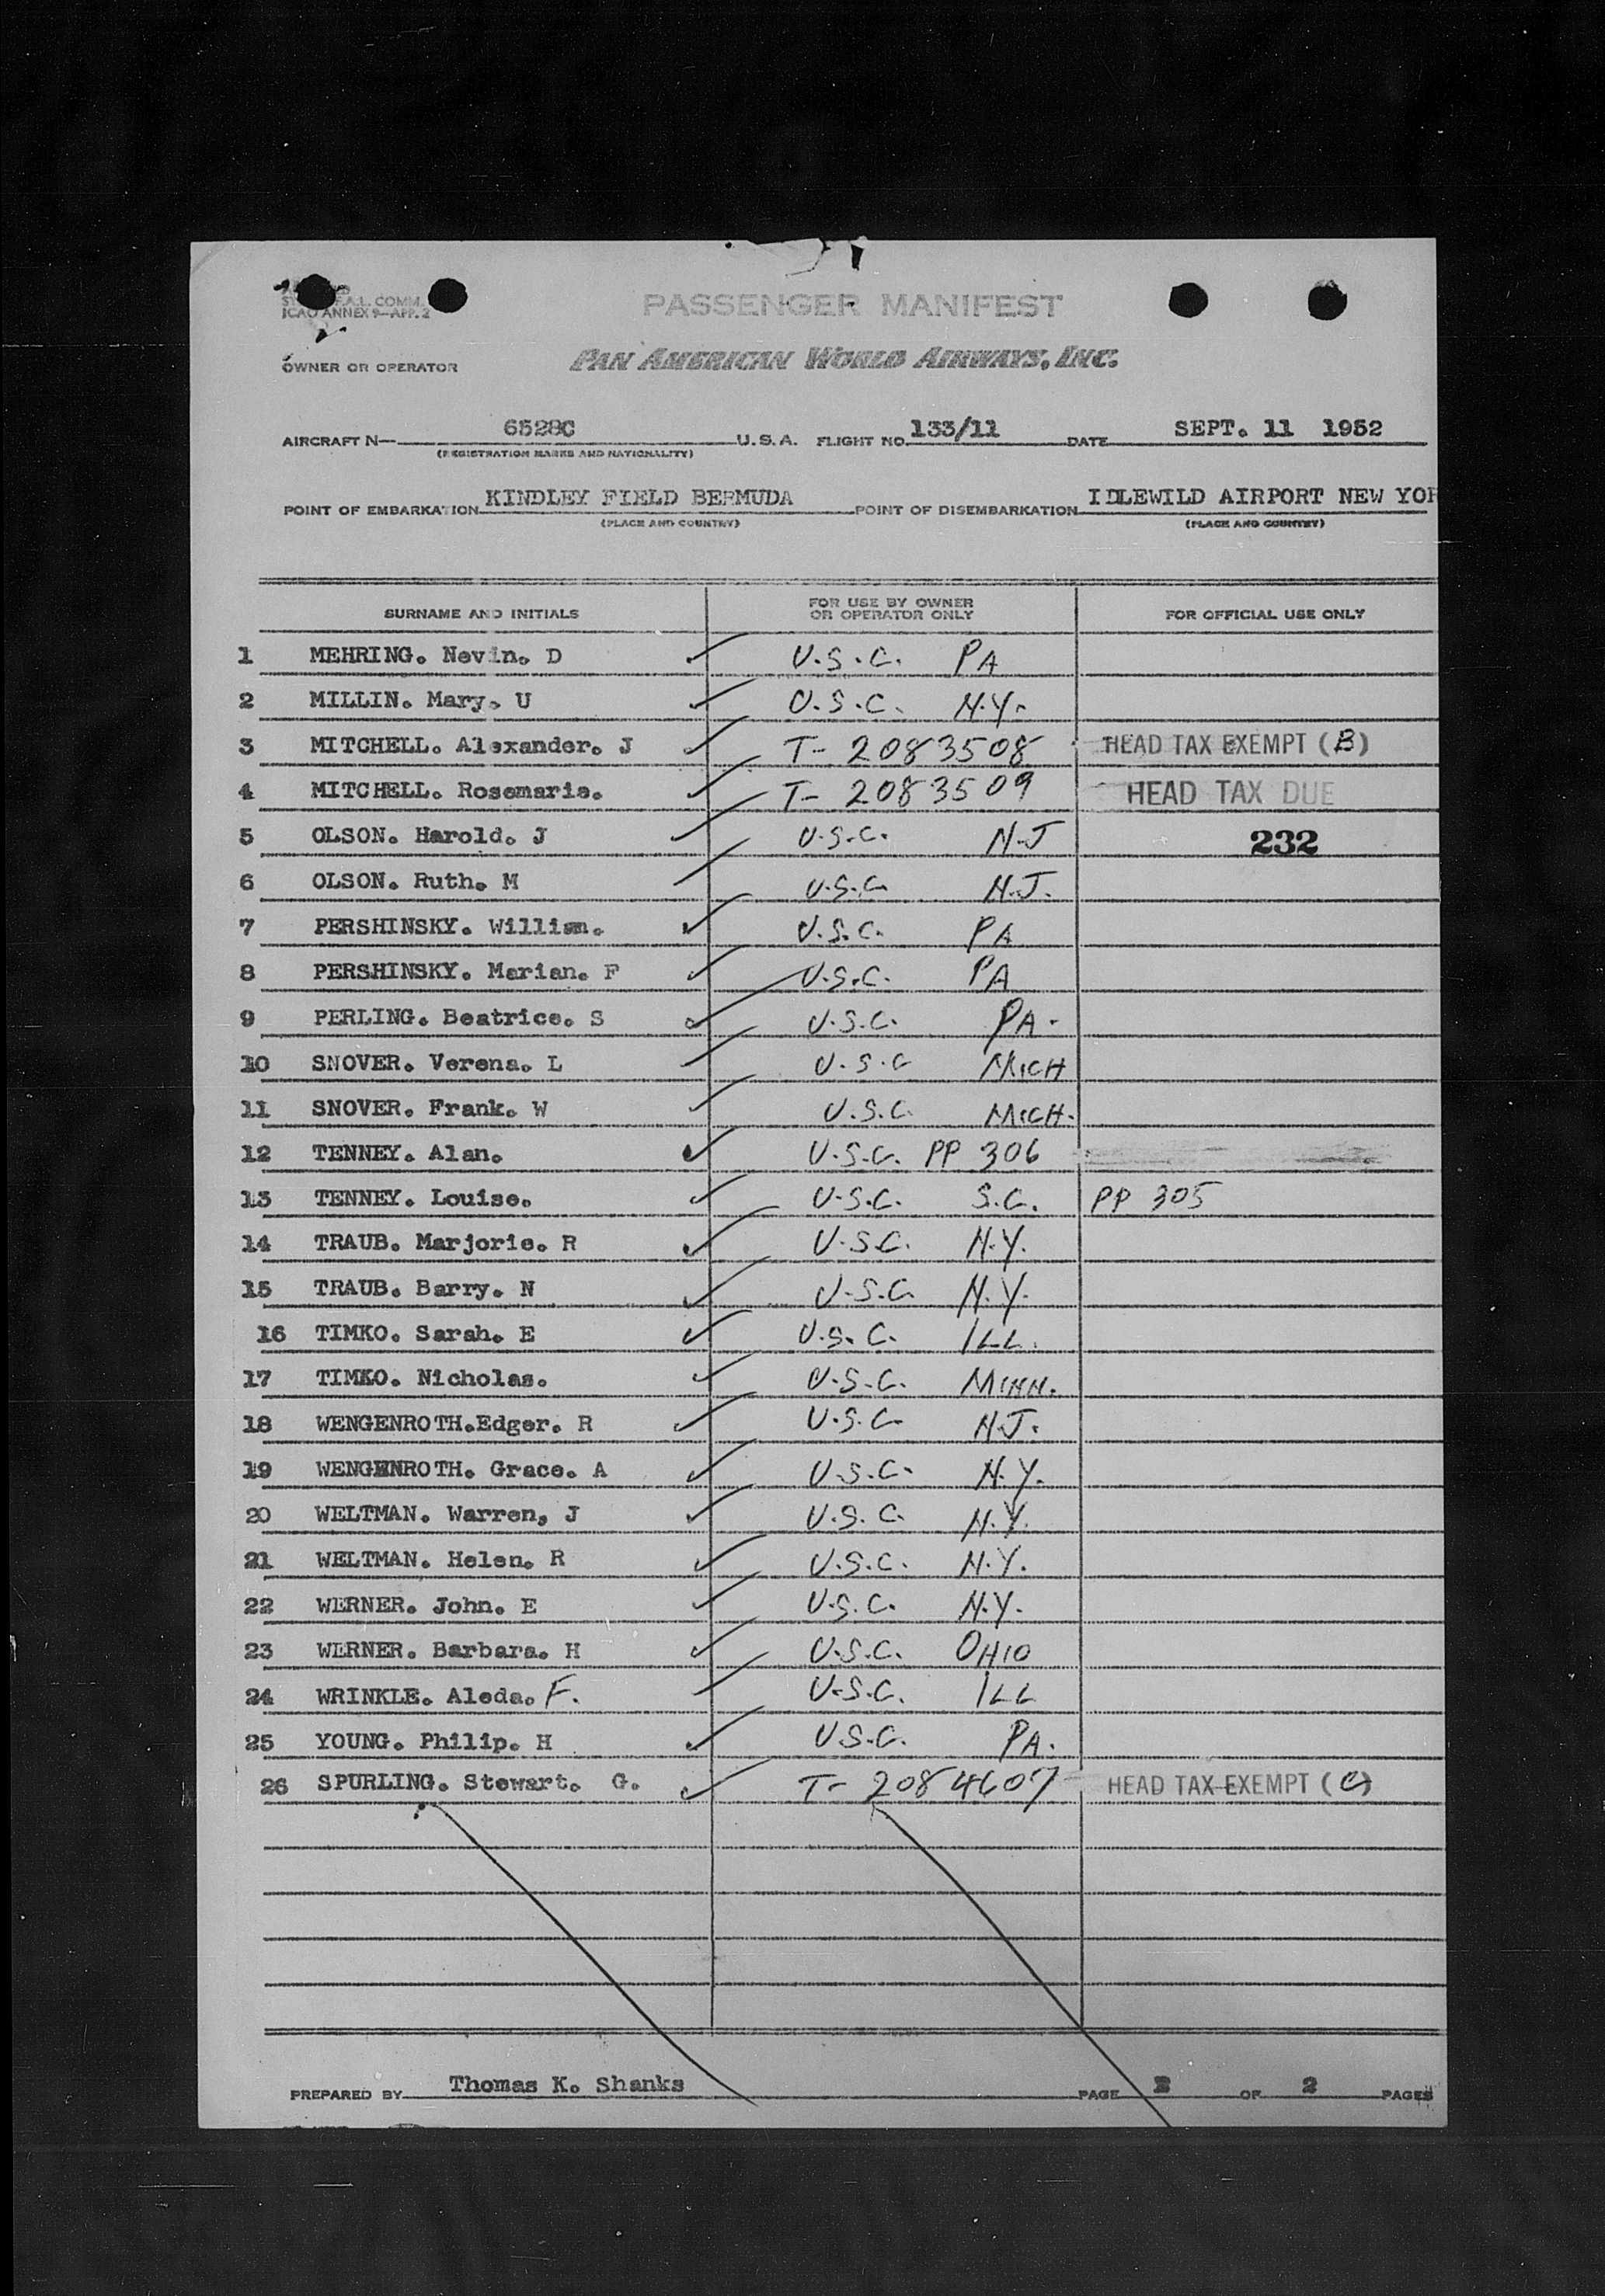 F.A.L. COMM.
ICAO ANNEX 9—APP. 2
PASSENGER MANIFEST
OWNER OR OPERATOR PAN AMERICAN WORLD AIRWAYS, INC.
AIRCRAFT N— 6528C U.S.A. FLIGHT NO. 133/11 DATE SEPT. 11 1952
(REGISTRATION MARKS AND NATIONALITY)
POINT OF EMBARKATION KINDLEY FIELD BERMUDA POINT OF DISEMBARKATION IDLEWILD AIRPORT NEW YOR
(PLACE AND COUNTRY) (PLACE AND COUNTRY)
SURNAME AND INITIALS FOR USE BY OWNER OR OPERATOR ONLY FOR OFFICIAL USE ONLY
1 MEHRING. Nevin. D U.S.C. PA
2 MILLIN. Mary. U U.S.C. N.Y.
3 MITCHELL. Alexander. J T- 2083508 HEAD TAX EXEMPT (B)
4 MITCHELL. Rosemarie. T- 2083509 HEAD TAX DUE
5 OLSON. Harold. J U.S.C. N.J 232
6 OLSON. Ruth. M U.S.C. N.J.
7 PERSHINSKY. William. U.S.C. PA
8 PERSHINSKY. Marian. F U.S.C. PA
9 PERLING. Beatrice. S U.S.C. PA.
10 SNOVER. Verena. L U.S.C MICH
11 SNOVER. Frank. W U.S.C. MICH.
12 TENNEY. Alan. U.S.C. PP 306
13 TENNEY. Louise. U.S.C. S.C. PP 305
14 TRAUB. Marjorie. R U.S.C. N.Y.
15 TRAUB. Barry. N U.S.C N.Y.
16 TIMKO. Sarah. E U.S.C. ILL.
17 TIMKO. Nicholas. U.S.C. MINN.
18 WENGENROTH.Edger. R U.S.C. N.J.
19 WENGENROTH. Grace. A U.S.C. N.Y.
20 WELTMAN. Warren, J U.S.C. N.Y.
21 WELTMAN. Helen. R U.S.C. N.Y.
22 WERNER. John. E U.S.C. N.Y.
23 WERNER. Barbara. H U.S.C. OHIO
24 WRINKLE. Aleda. F. U.S.C. ILL
25 YOUNG. Philip. H U.S.C. PA.
26 SPURLING. Stewart. G. T- 2084607 HEAD TAX EXEMPT (C)
PREPARED BY Thomas K. Shanks PAGE 2 OF 2 PAGES